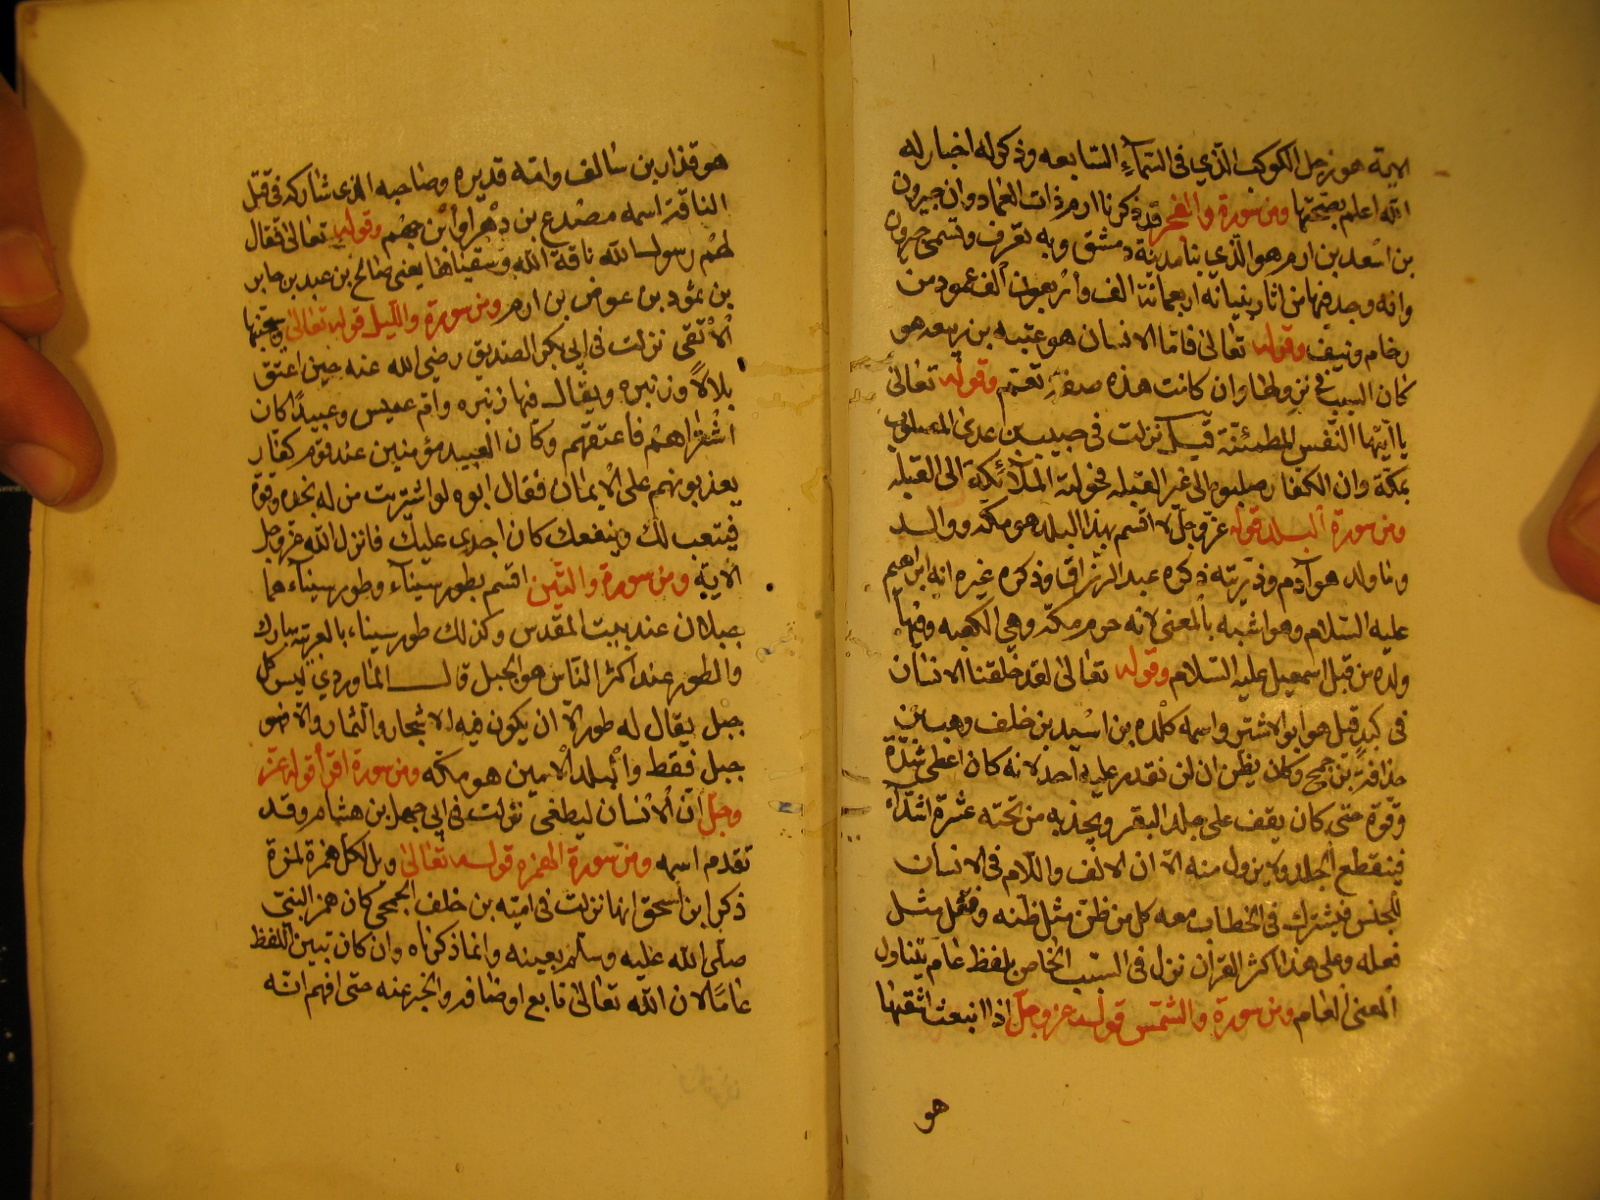 الايمة هو زحل الكوكب الذي في السمآء السابعه وذكر له اخبار له
الله اعلم بصحتها ومن سورة والفجر قد ذكرنا ارم ذات العماد وان جيرون
بن اسعد بن ارم هو الذي بنا مدينة دمشق وبه تعرف وتسمى جيرون
وانه وجد فيها من اثار بنيانه اربعمائة الف وأربعون ألف عمود من
رخام ونيف وقوله تعالى فاما الانسان هو عتبه بن ربيعه هو
كان السبب في نزولها وان كانت هذه صفة تعم وقوله تعالى
يا أيتها النفس المطمئنة قيل نزلت في خبيب بن عدى المصلوب
بمكة وان الكفار صلبوه الى غير القبله فحولته الملآئكة الى القبله
ومن سورة البلد قوله عز وجل لا اقسم بهذا البلد هو مكه ووالد
وما ولد هو آدم وذريته ذكره عبد الرزاق وذكره غيره انه ابراهيم
عليه السلام وهو اشبه بالمعنى لانه حرم مكة وهي الكعبه وفيها
ولده من قبل اسمعيل عليه السلام وقوله تعالى لقد خلقنا الانسان
في كبد قيل هو ابو الاشدين واسمه كلده بن اسيد بن خلف وهب بن
حذافة بن جمح وكان يظن ان لن نقدر عليه احد لانه كان اعطى شدة
وقوة حتى كان يقف على جلد البقر ويجذبه من تحته عشرة اشدآء
فينقطع الجلد ولا يزول منه الا ان الالف واللام في الانسان
للجنس فيشترك في الخطاب معه كل من ظن مثل ظنه وفعل مثل
فعله وعلى هذا اكثر القرآن نزل في السبب الخاص بلفظ عام يتناول
المعنى العام ومن سورة والشمس قوله عز وجل اذا انبعث اشقيها
هو
هو قذار بن سالف وامه قديره وصاحبه الذي شاركه في قتل
الناقة اسمه مصدع بن دهر أو ابن جهم وقوله تعالى فقال
لهم رسول الله ناقة الله وسقياها يعني صالح بن عبد بن جابر
بن ثمود بن عوص بن ارم ومن سورة والليل قوله تعالى وسيجنبها
الأتقى نزلت في ابي بكر الصديق رضي الله عنه حين اعتق
بلالا وزنيره ويقال فيها زنبره وام عميس وعبيدا كان
اشتراهم فاعتقهم وكان العبيد مؤمنين عند قوم كفار
يعذبونهم على الايمان فقال ابوه لو اشتريت من له نجده وقوة
فيتعب لك وينفعك كان اجدى عليك فانزل الله عز وجل
الآية ومن سورة والتين اقسم بطور سينآء وطور سيناء هما
جبلان عند بيت المقدس وكذلك طور سيناء بالعربية مبارك
والطور عند اكثر الناس هو الجبل قال الماوردي ليس كل
جبل يقال له طور الا ان يكون فيه الاشجار والثمار والا فهو
جبل فقط والبلد الامين هو مكه ومن سورة اقرأ قوله عز
وجل ان الانسان ليطغى نزلت في ابي جهل بن هشام وقد
تقدم اسمه ومن سورة الهمزه قوله تعالى ويل لكل همزة لمزة
ذكر ابن اسحق انها نزلت في امية بن خلف الجمحي كان همز النبي
صلى الله عليه وسلم بعينه وانما ذكرناه وان كان تبين اللفظ
عاما لان الله تعالى تابع اوصافه والخبر عنه حتى افهم انه